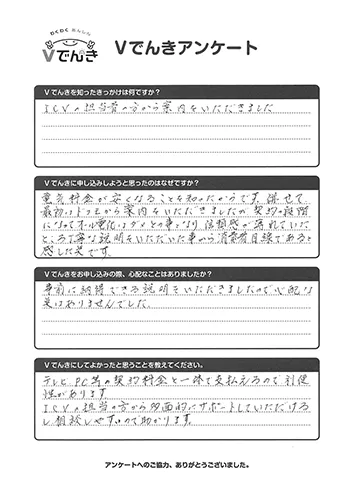 わくわく あんしん
Vでんき
Vでんきアンケート
Vでんきを知ったきっかけは何ですか?
ICVの担当者の方から案内をいただきました
Vでんきに申し込みしようと思ったのはなぜですか?
電気料金が安くなることを知ったからです。併せて
最初はドコモから案内をいただきましたが契約の段階
になってオール電化はダメとの事となり信頼感が薄れていた
ところ丁寧な説明をいただいた事から消費者目線であると
感じた是です。
Vでんきをお申し込みの際、心配なことはありましたか?
事前に納得できる説明をいただきましたので心配な
是はありませんでした。
Vでんきにしてよかったと思うことを教えてください。
テレビ、PC等の契約料金と一括で支払えるので利便
性があります。
ICVの担当の方から多面的にサポートしていただけるし
相談しやすいので助かります。
アンケートへのご協力、ありがとうございました。